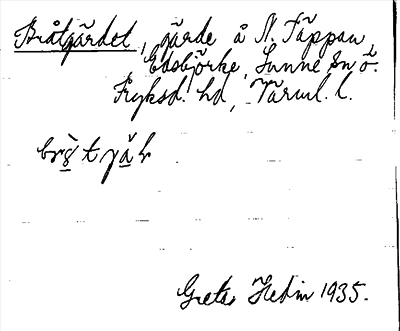 Bråtgärdet, gärde å N. Täppan
Edsbjörke, Sunne sn ö.
Fryksd. hd, Värml. l.
Greta Hedin 1935.